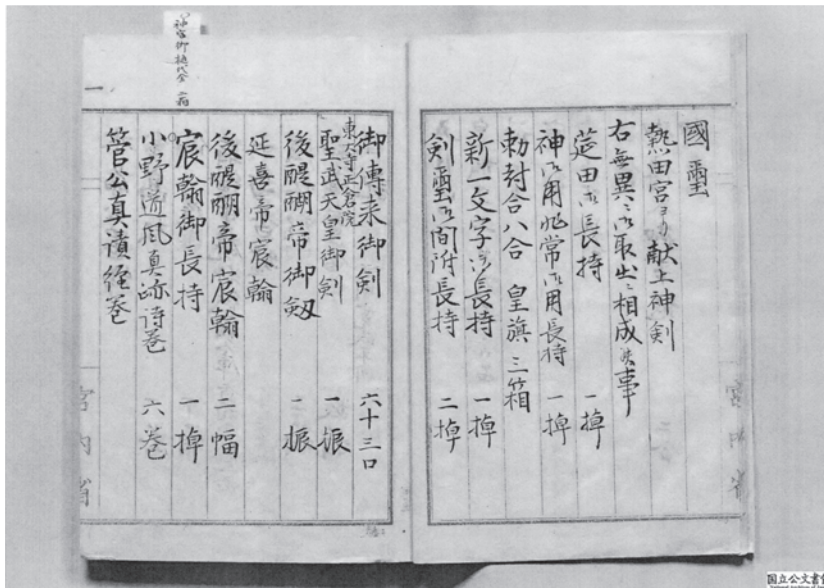 國璽
熱田宮ヨリ献上神剣
右無異ニ御取出ニ相成候事
莚田御長持 一掉
神御用非常御用長持 一掉
勅封合八合 皇旗三箱
新一文字御長持 一掉
剣璽御間附長持 二掉
御傳来御剣 六十三口
東大寺正倉院
聖武天皇御剣 一振
後醍醐帝御剱 一振
延喜帝宸翰
後醍醐帝宸翰 二幅
宸翰御長持 一掉
小野道風真跡詩巻 六巻
菅公真蹟経巻
一
宮内省
宮内省
国立公文書館